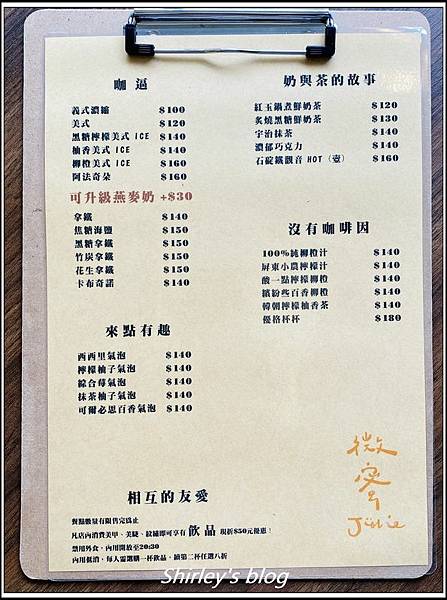 咖逼
義式濃縮 $100
美式 $120
黑糖檸檬美式 ICE $140
柚香美式 ICE $140
柳橙美式 ICE $160
阿法奇朵 $160
可升級燕麥奶 +$30
拿鐵 $140
焦糖海鹽 $150
黑糖拿鐵 $150
竹炭拿鐵 $150
花生拿鐵 $150
卡布奇諾 $140
來點有趣
西西里氣泡 $140
檸檬柚子氣泡 $140
綜合莓氣泡 $140
抹茶柚子氣泡 $140
可爾必思百香氣泡 $140
奶與茶的故事
紅玉鍋煮鮮奶茶 $120
炙燒黑糖鮮奶茶 $130
宇治抹茶 $140
濃郁巧克力 $140
石碇鐵觀音 HOT (壺) $160
沒有咖啡因
100%純柳橙汁 $140
屏東小農檸檬汁 $140
酸一點檸檬柳橙 $140
繽紛些百香柳橙 $140
韓朝檸檬柚香茶 $140
優格杯杯 $180
相互的友愛
餐點數量有限售完為止
凡店內消費美甲、美睫、紋繡即可享有 飲品 現折$50元優惠!
禁用外食,內用開放至20:30
內用低消,每人需選購一杯飲品,續第二杯任選八折
Shirley's blog